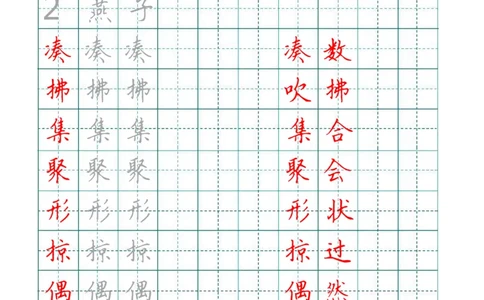 2 燕 子
凑 凑 凑 凑 数
拂 拂 拂 吹 拂
集 集 集 集 合
聚 聚 聚 聚 会
形 形 形 形 状
掠 掠 掠 掠 过
偶 偶 偶 偶 然